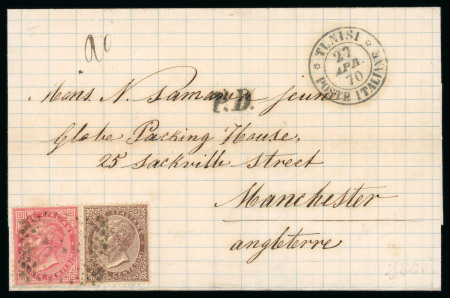 TUNISI
27
APR.
70
POSTE ITALIANE
P.D.
Mons. N. Samama jeune
Globe Packing House.
25 Sackville Street
Manchester
Angleterre